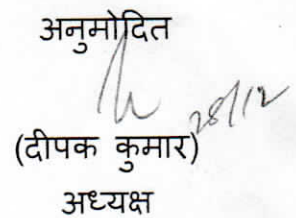 अनुमोदित
28/12
(दीपक कुमार)
अध्यक्ष